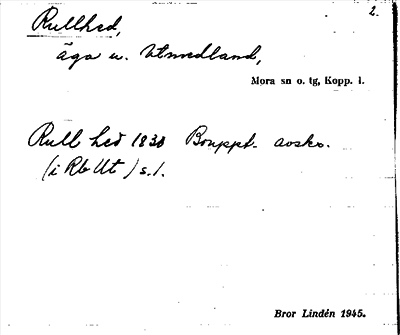 2.
Rullhed,
äga u. Utmedland,
Mora sn o. tg, Kopp. l.
Rull hed 1838 Bouppt. avskr.
(i Rb Ut) s. 1.
Bror Lindén 1945.